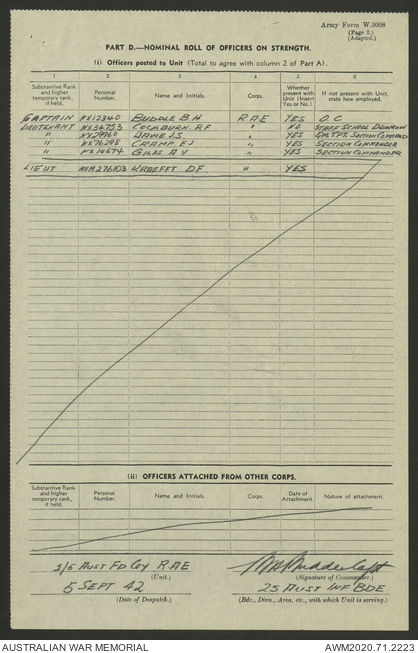 Army Form W.3008
(Page 2.)
(Adapted.)
PART D.—NOMINAL ROLL OF OFFICERS ON STRENGTH.
(i) Officers posted to Unit (Total to agree with column 2 of Part A).
1 2 3 4 5 6
Substantive Rank and higher temporary rank, if held. Personal Number. Name and Initials. Corps. Whether present with Unit (Insert Yes or No.) If not present with Unit, state how employed.
CAPTAIN NX12340 BUDDLE B.H RAE YES O.C
LIEUTENANT NX34753 COCKBURN A.F " NO STAFF SCHOOL
" DAWE J.S " YES SECTION COMMAND
" NX76298 CRAMP E J " YES SECTION COMMANDER
" NX14674 GILES A V " YES SECTION COMMANDER
LIEUT KRAEFFT D.F. " YES
(ii) OFFICERS ATTACHED FROM OTHER CORPS.
1 2 3 4 5 6
Substantive Rank and higher temporary rank, if held. Personal Number. Name and Initials. Corps. Date of Attachment. Nature of attachment.
2/5 AUST FD COY RAE
(Unit.) (Signature of Commander.)
5 SEPT 42 25 AUST INF BDE
(Date of Despatch.) (Bde., Divn., Area, etc., with which Unit is serving.)
AUSTRALIAN WAR MEMORIAL AWM2020.71.2223